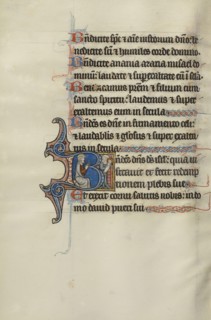 Benedicite spc et aie iustorum dno: be
nedicite sci et humiles corde domino.
Benedicite anania azaria misael do
mino: laudate et superexaltate eu i scla.
Benedicamus prem et filium cum
sancto spiritu: laudemus et super
exaltemus eum in secula.
Bndcs es dne in firmamento celi:
et laudabilis et gliosus et super exaltat
tus in secula.
Bndcs dns ds isrl: quia ui
sitauit et fecit redemp
tionem plebis sue.
Et erexit cornu salutis nobis: in do
mo dauid pueri sui.